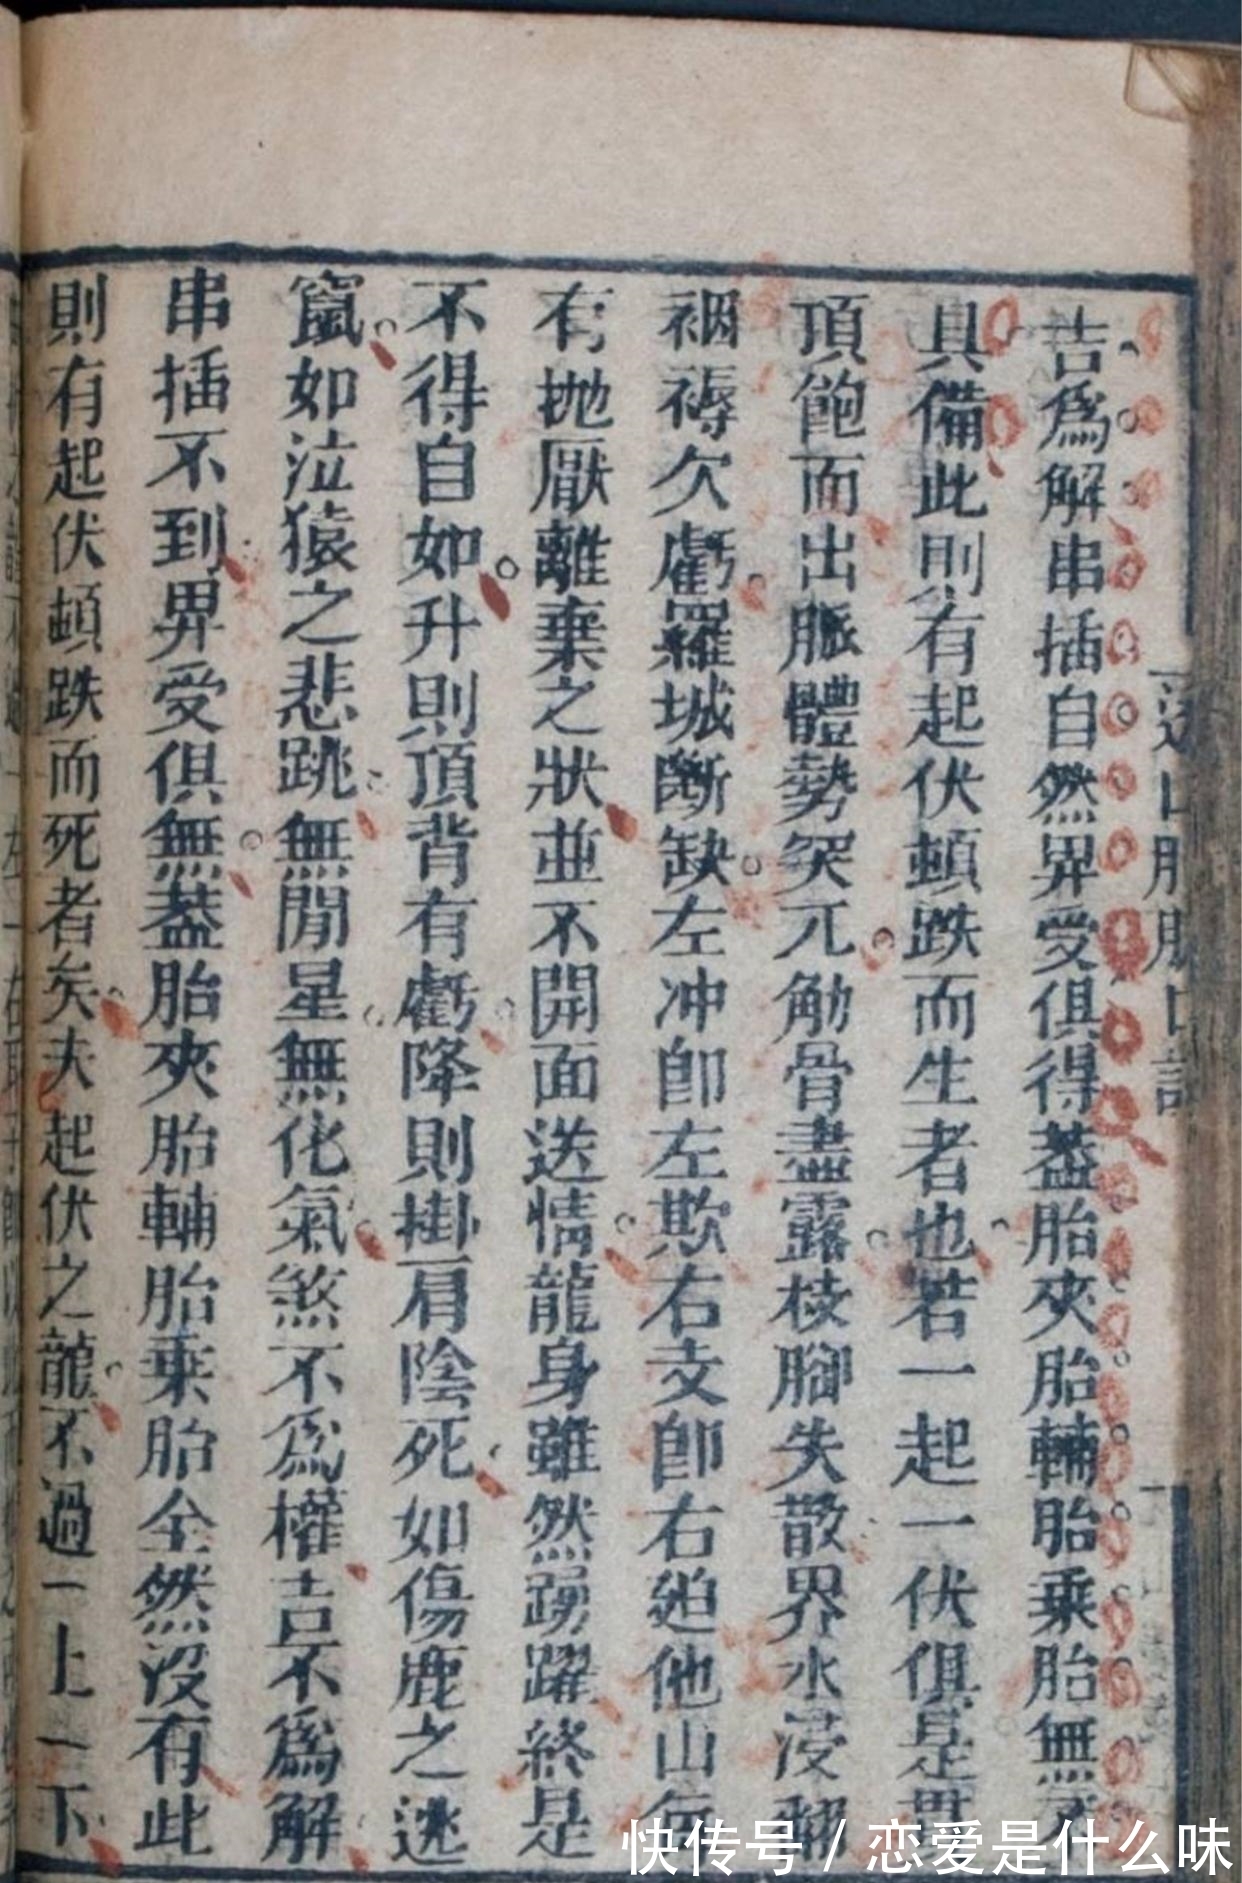 吉為解串插自然界受俱得蓋胎夾胎輔胎乘胎無不
具備此則有起伏頓跌而生者也若一起一伏俱是貫
頂飽而出脈體勢突兀觔骨盡露枝腳失散界水浸
裀褥欠虧羅城斷缺左冲卽左欺右支卽右廹他山每
有拋厭離棄之狀並不開面送情龍身雖然踴躍終是
不得自如升則頂背有虧降則掛肩陰死如傷鹿之逃
竄如泣猿之悲跳無閒星無化氣煞不為權吉不為解
串插不到界受俱無蓋胎夾胎輔胎乘胎全然沒有此
則有起伏頓跌而死者矣夫起伏之龍不過一上一下
快传号/恋爱是什么味